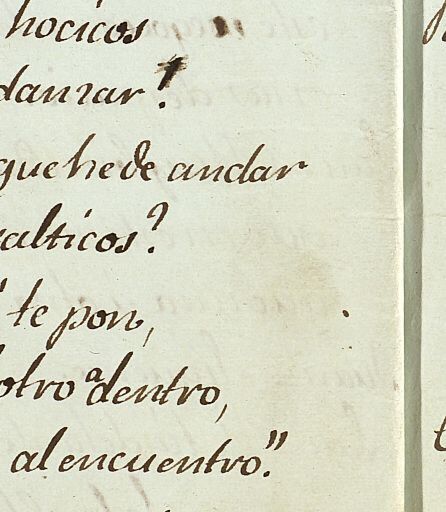 hocicos
danzar!
que he de andar
te pon,
otro adentro,
al encuentro."